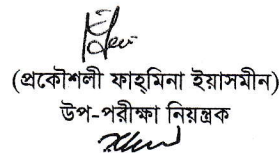 (প্রকৌশলী ফাহ্‌মিনা ইয়াসমীন)
উপ-পরীক্ষা নিয়ন্ত্রক